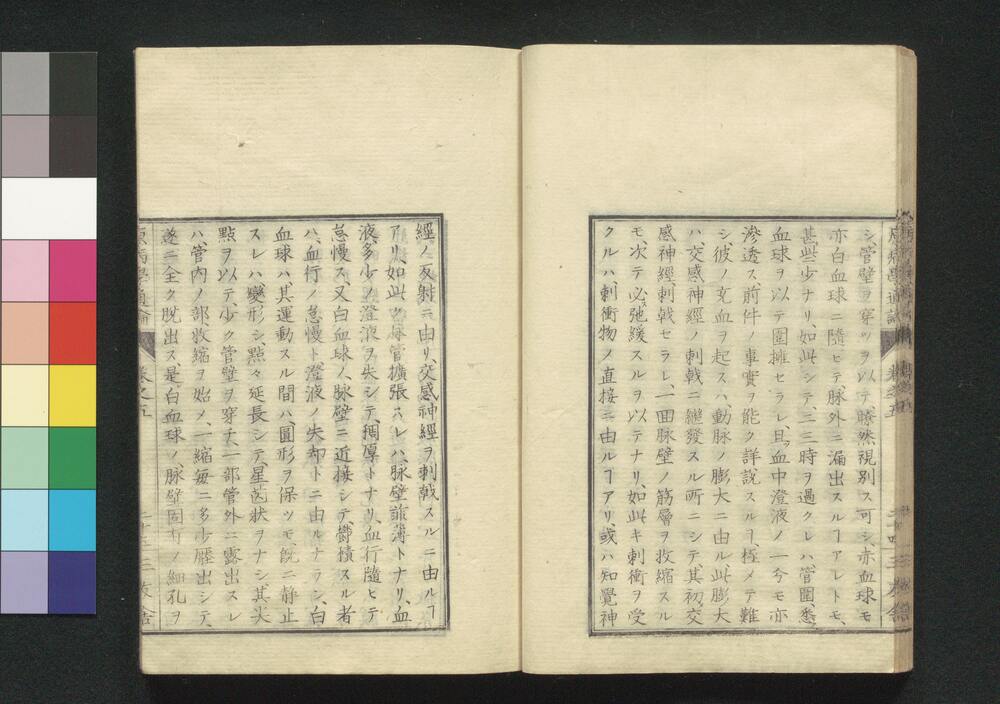 シ、管壁ヲ穿ツヲ以テ瞭然視別ス可シ、赤血球モ
亦白血球ニ隨ヒテ、脈外ニ漏出スルヿアレトモ、
甚些少ナリ、如此シテ、二三時ヲ過クレハ、管圍、悉ク
血球ヲ以テ圍擁セラレ、且ツ血中澄液ノ一分モ亦
滲透ス、前件ノ事實ヲ能ク詳説スルヿ、極メテ難
シ、彼ノ充血ヲ起スハ、動脈ノ膨大ニ由ル、此膨大
ハ、交感神經ノ刺戟ニ繼發スル所ニシテ、其初メ交
感神經、刺戟セラレ、一回脈壁ノ筋層ヲ收縮スル
モ、次テ必ス弛緩スルヲ以テナリ、如此キ刺衝ヲ受
クルハ、刺衝物ノ直接ニ由ルヿアリ、或ハ知覺神
經ノ反射ニ由リ、交感神經ヲ刺戟スルニ由ルヿ
アリ、如此ク脈管擴張スレハ、脈壁菲薄トナリ、血
液多少ノ澄液ヲ失シテ、稠厚トナリ、血行隨ヒテ
怠慢ス、又白血球ノ、脈壁ニ近接シテ、鬱積スル者
ハ、血行ノ怠慢ト、澄液ノ失却トニ由ルナラン、白
血球ハ、其運動スル間ハ、圓形ヲ保ツモ、既ニ静止
スレハ、變形シ、點々延長シテ、星芒状ヲナシ、其尖
點ヲ以テ、少ク管壁ヲ穿チ、一部管外ニ露出スレ
ハ、管内ノ部收縮ヲ始メ、一縮毎ニ多少歴出シテ、
遂ニ全ク脱出ス、是白血球ノ、脈壁固有ノ細孔ヲ